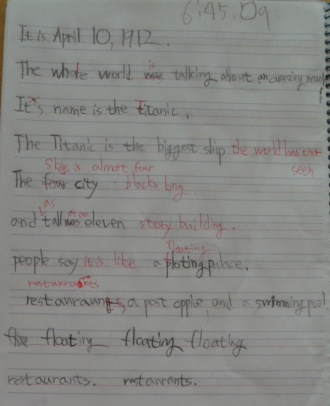 6:45:09
It is April 10, 1912.
The whole world was talking about an amazing
is
It's name is the titanic.
The Titanic is the biggest ship the world has ever
She is almost four seen
The four city blocks long
as as an
and tall was eleven story building.
floating
people say it is like a ploting palace.
restaurants
restauraunts, a post opple, and a swimming pool
floating floating floating
restaurants. restaurants.